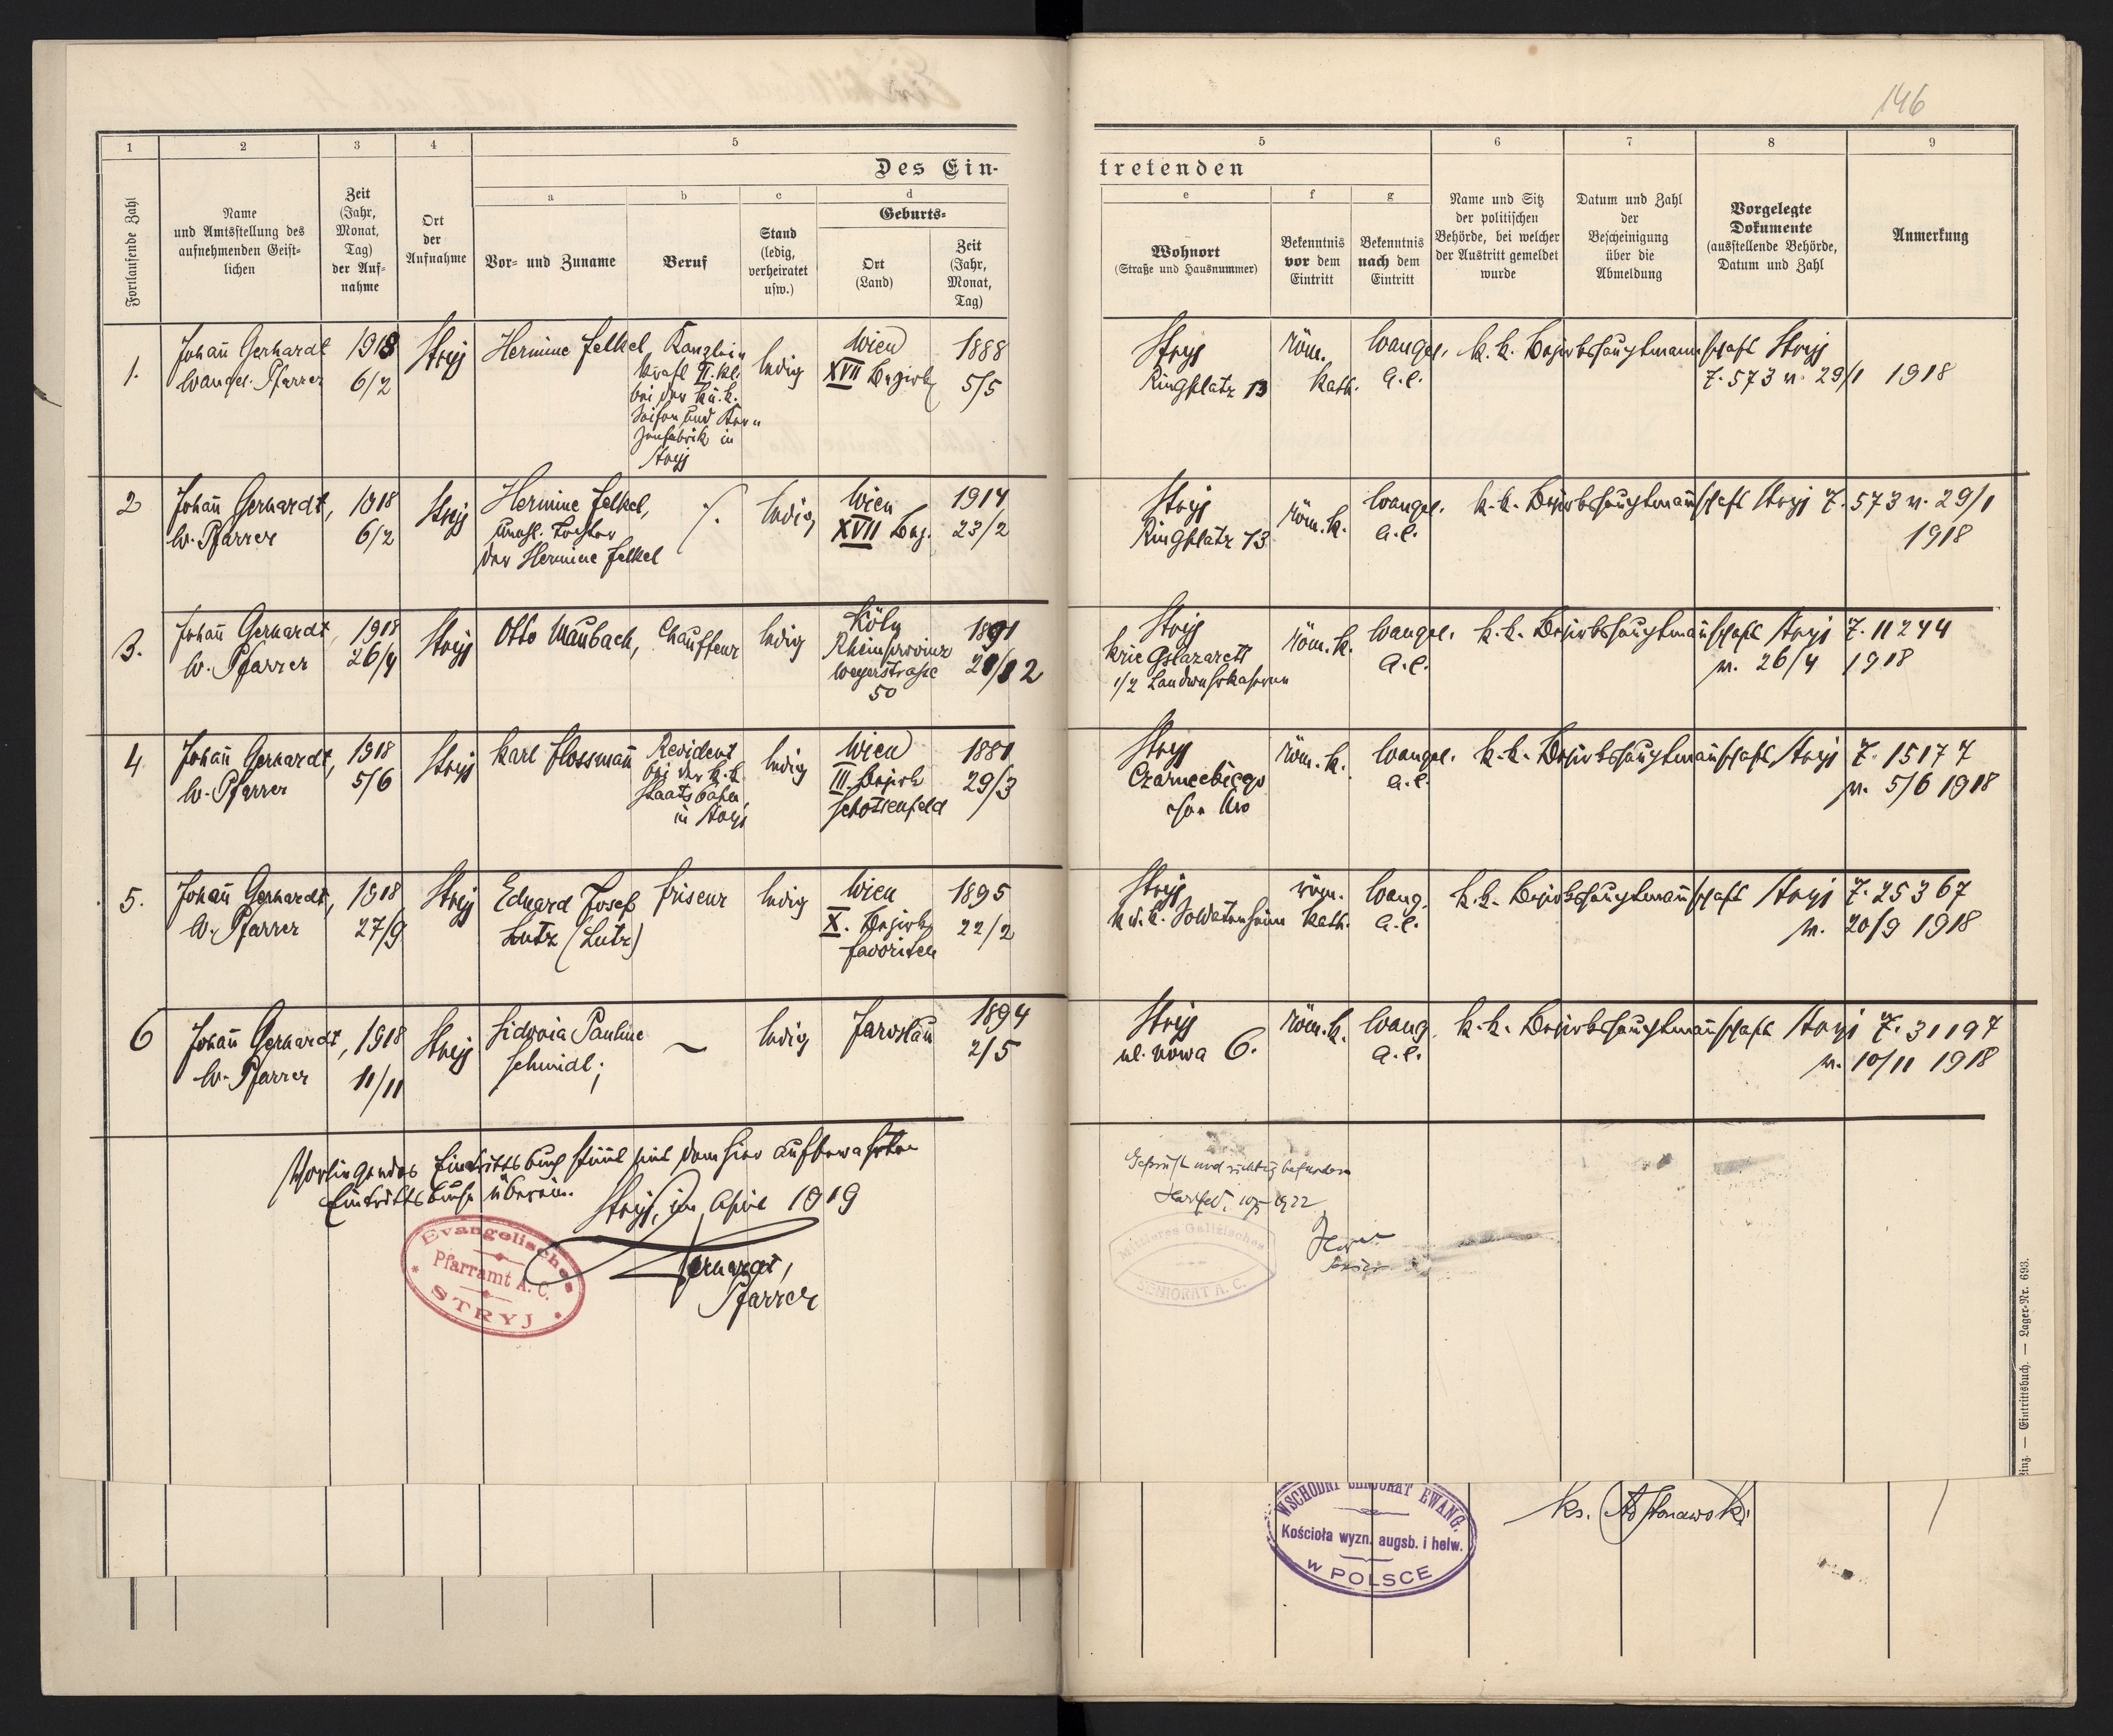 146
1 2 3 4 5
Des Ein-
Fortlaufende Zahl
Name
und Amtsstellung des
aufnehmenden Geist-
lichen
Zeit
(Jahr,
Monat,
Tag)
der Auf-
nahme
Ort
der
Aufnahme
a b c d
Vor- und Zuname
Beruf
Stand
(ledig,
verheiratet
usw.)
Geburts-
Ort
(Land)
Zeit
(Jahr,
Monat,
Tag)
5 6 7 8 9
tretenden
e f g
Wohnort
(Straße und Hausnummer)
Bekenntnis
vor dem
Eintritt
Bekenntnis
nach dem
Eintritt
Name und Sitz
der politischen
Behörde, bei welcher
der Austritt gemeldet
wurde
Datum und Zahl
der
Bescheinigung
über die
Abmeldung
Vorgelegte
Dokumente
(ausstellende Behörde,
Datum und Zahl
Anmerkung
1.
Johañ Gerhardt
evangel. Pfarrer
1918
6/2
Stryj
Hermine Felkel
Kanzlei-
kraft II. Kl.
bei der k.u.k.
Seifen und Ker-
zenfabrik in
Stryj
ledig
Wien
XVII Bezirk
1888
5/5
Stryj
Ringplatz 13
röm.
kath.
evangel.
A.C.
k.k. Bezirkshauptmannschaft Stryj
Z. 573 v. 29/1 1918
2
Johañ Gerhardt,
ev. Pfarrer
1918
6/2
Stryj
Hermine Felkel,
unehl. Tochter
der Hermine Felkel
./.
ledig
Wien
XVII Bez.
1914
23/2
Stryj
Ringplatz 13
röm. k.
evangel.
A.C.
k.k. Bezirkshauptmañschaft Stryj Z. 573 v. 29/1
1918
3.
Johañ Gerhardt,
ev. Pfarrer
1918
26/4
Stryj
Otto Maubach,
Chauffeur
ledig
Köln
Rheinprovinz
Weyerstrasse
50
1891
Stryj
Kriegslazarett
1/2 Landwehrkaserne
röm. k.
evangel.
A.C.
k.k. Bezirkshauptmañschaft Stryj Z. 11244
v. 26/4 1918
4
Johañ Gerhardt,
ev. Pfarrer
1918
5/6
Stryj
Karl Flossmañ
Revident
bei der k.k.
Staatsbahn
in Stryj
ledig
Wien
III. Bezirk
Schottenfeld
1881
29/3
Stryj
röm. k.
evangel.
A.C.
k.k. Bezirkshauptmañschaft Stryj Z. 15177
v. 5/6 1918
5.
Johañ Gerhardt,
ev. Pfarrer
1918
27/9
Stryj
Eduard Josef
Lutz (Lutz)
Friseur
ledig
Wien
X. Bezirk
Favoriten
1895
22/2
Stryj
k.u.k. Soldatenheim
röm.
kath.
evang.
A.C.
k.k. Bezirkshauptmañschaft Stryj Z. 25367
v. 20/9 1918
6
Johañ Gerhardt,
ev. Pfarrer
1918
11/11
Stryj
Sidonia Pauline
Schmidl;
~
ledig
Jaroslau
1894
2/5
Stryj
ul. nowa 6.
röm. k.
evang.
A.C.
k.k. Bezirkshauptmañschaft Stryj Z. 31197
v. 10/11 1918
Vorliegendes Eintrittsbuch stimt mit dem hier aufbewahrten
Eintrittsbuche überein.
Stryj, im April 1919
Gerhardt,
Pfarrer
Evangelisches
Pfarramt A. C.
STRYJ
Geprüft und richtig befunden
1922
Mittleres Galizisches
SENIORAT A. C.
Senior
WSCHODNI SENJORAT EWANG.
Kościoła wyzn. augsb. i helw.
W POLSCE
ks.
— Eintrittsbuch. — Lager-Nr. 693.